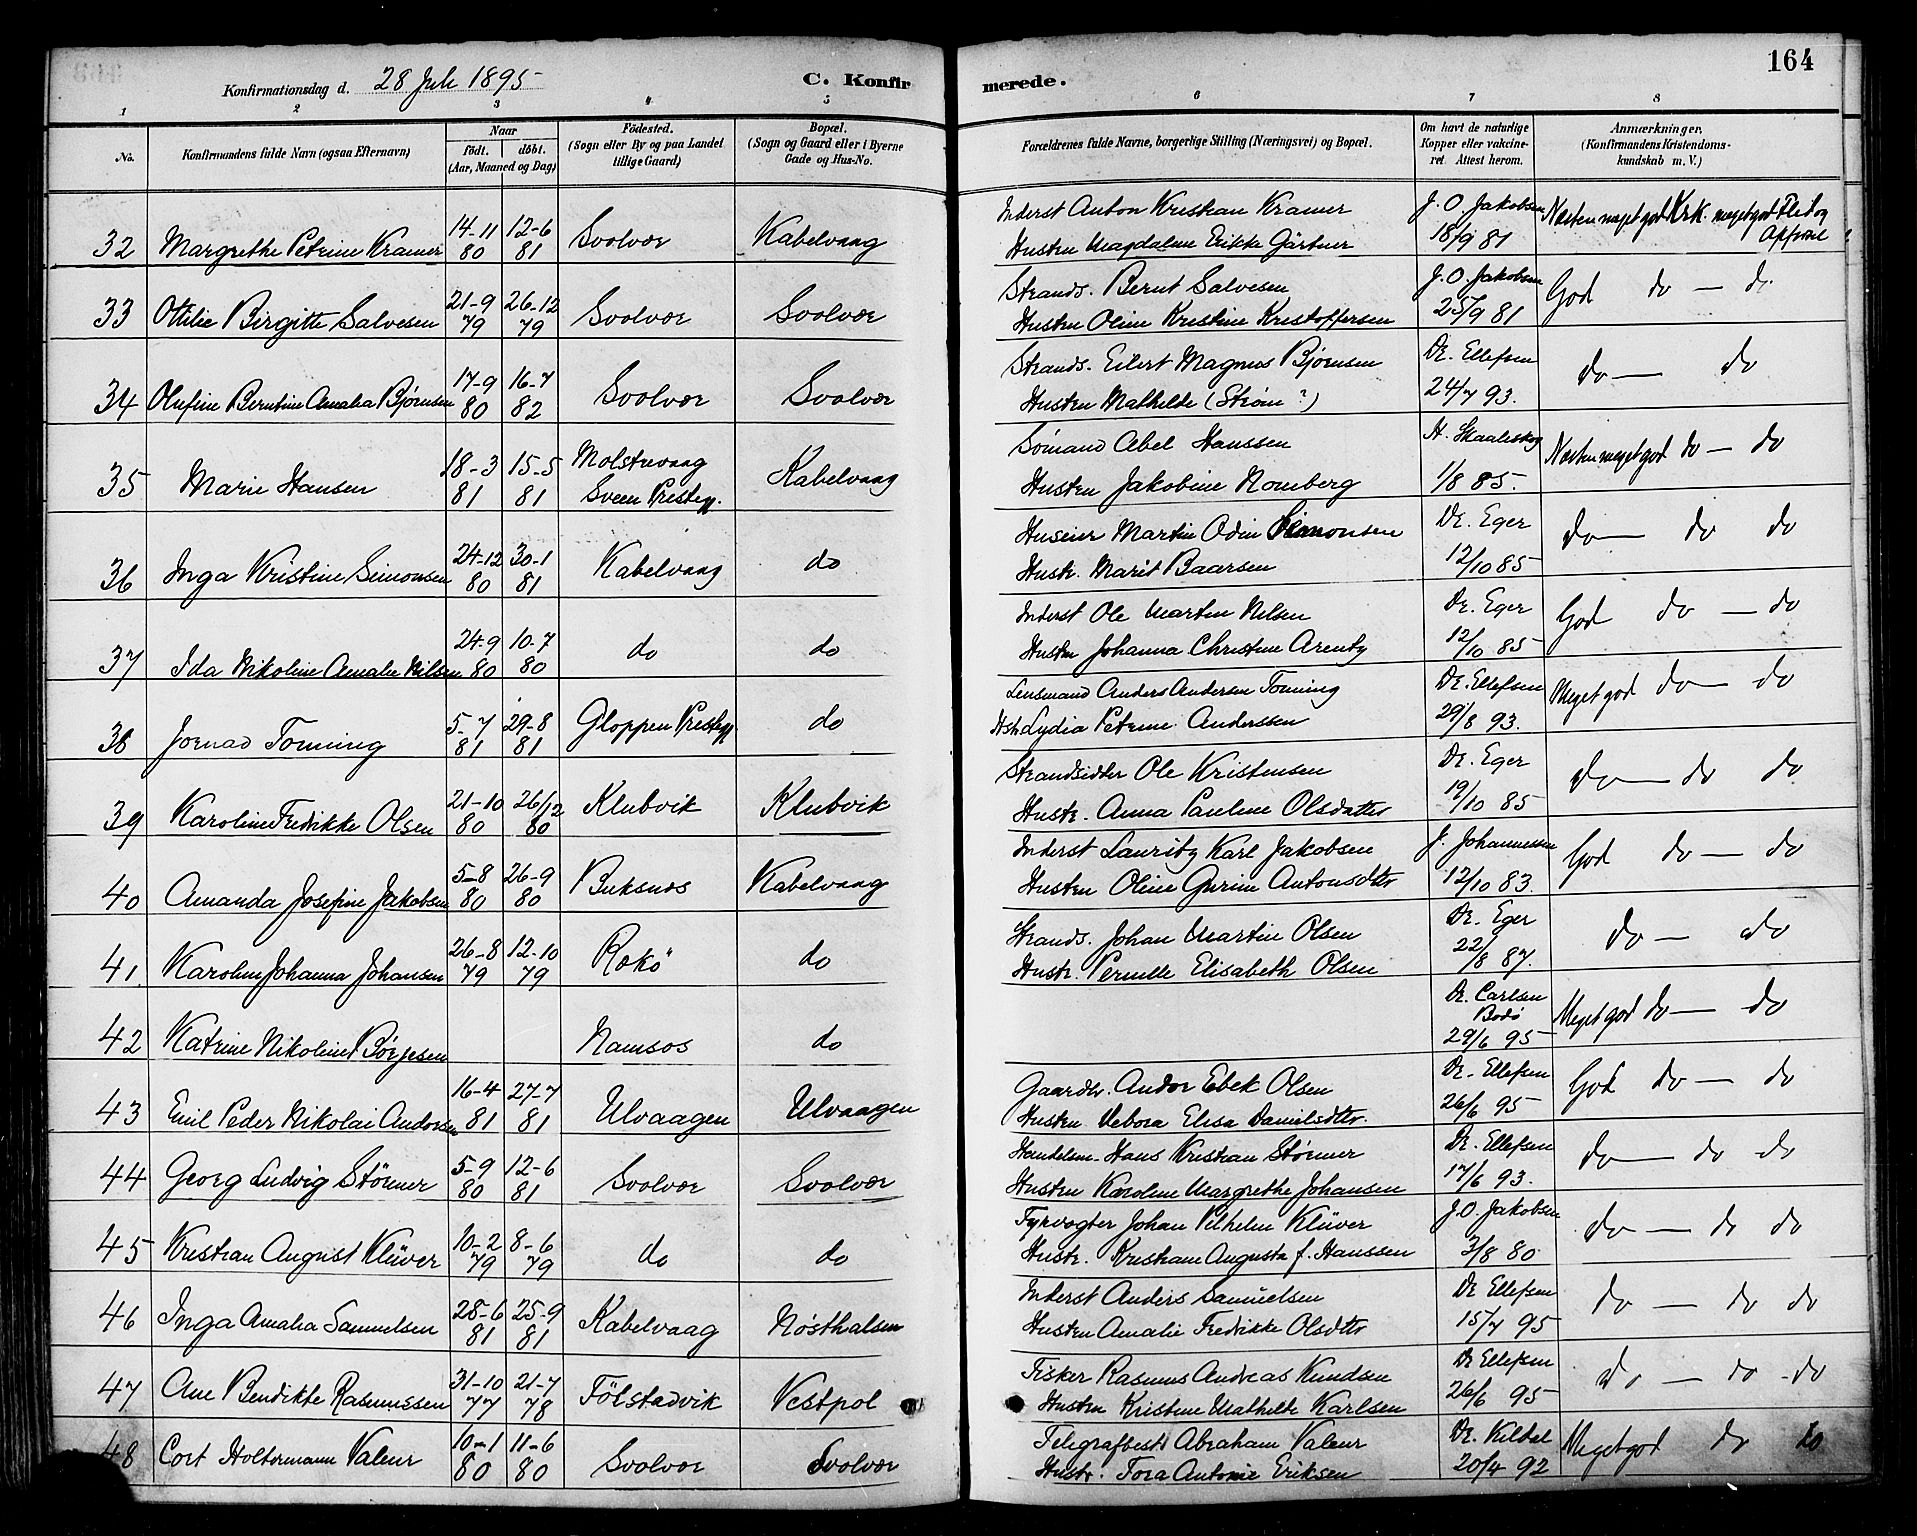 164
Konfirmationsdag d. 28 Juli 1895 C. Konfirmerede.
1 2 3 4 5 6 7 8
No. Konfirmandens fulde Navn (ogsaa Efternavn) Naar födt. döbt. (Aar, Maaned og Dag) Födested. (Sogn eller By og paa Landet tillige Gaard) Bopæl. (Sogn og Gaard eller i Byerne Gade og Hus-No. Forældrenes fulde Navne, borgerlige Stilling (Næringsvei) og Bopæl. Om havt de naturlige Kopper eller vakcineret. Attest herom. Anmærkninger. (Konfirmandens Kristendomskundskab m. V.)
32 Margrethe Petrine Kramer 14-11 80 12-6 81 Svolvær Kabelvaag Inderst Anton Kristian Kramer J. O. Jakobsen Næsten meget god Krk. meget god Flid og Opførsel
Hustru Magdalene Erikka Gärtner 18/9 81
33 Otilie Birgitte Salvesen 21-9 79 26-12 79 Svolvær Svolvær Strands. Bernt Salvesen J. O. Jakobsen God do — do
Hustru Oline Kristine Kristoffersen 25/9 81
34 Olufine Berntine Amalia Bjørnsen 17-9 80 16-7 82 Svolvær Svolvær Strands. Eilert Magnus Bjørnsen Dr. Ellefsen do — do
Hustru Mathilde (Strøm ?) 24/7 93.
35 Marie Hansen 18-3 81 15-5 81 Molstrevaag Sveen Prestegj. Kabelvaag Sömand Abel Hanssen Næsten meget god do — do
Hustru Jakobine Nomberg 1/8 85.
36 Inga Kristine Simonsen 24-12 80 30-1 81 Kabelvaag do Huseier Martin Odin Simonsen Dr. Eger do — do do
Hustr. Marit Baarsen 12/10 85
37 Ida Nikoline Amalie Nilsen 24-9 80 10-7 80 do do Inderst Ole Martin Nilsen Dr. Eger God do — do
Hustru Johanna Christine Arentz 12/10 85
38 Jornad Tonning 5-7 81 29-8 81 Gloppen Prestegj. do Lensmand Anders Andersen Tonning Dr. Ellefsen Meget god do — do
Hst Lydia Petrine Anderssen 29/8 93.
39 Karoline Fredrikke Olsen 21-10 80 26/12 80 Klubvik Klubvik Strandsidder Ole Kristensen Dr. Eger do — do do
Hustr. Anna Pauline Olsdatter 19/10 85
40 Amanda Josefine Jakobsen 5-8 80 26-9 80 Buksnes Kabelvaag Inderst Lauritz Karl Jakobsen J. Johannessen God do — do
Hustru Oline Gurine Antonsdtr 12/10 83.
41. Karoline Johanna Johansen 26-8 79 12-10 79 do Strands. Johan Martin Olsen Dr. Eger do — do
Hustr. Pernille Elisabeth Olsen 22/8 87.
42 Katrine Nikoline Børgesen Namsos do Dr. Carlsen Bodø 29/6 95 Meget god do — do
43 Emil Peder Nikolai Andorsen 16-4 81 27-7 81 Ulvaagen Ulvaagen Gaardbr. Andor Ebek Olsen Dr. Ellefsen God do — do
Hustru Debora Elisa Danielsdtr. 26/6 95
44 Georg Ludvig Störmer 5-9 80 12-6 81 Svolvær Svolvær Handelsm. Hans Kristian Størmer Dr. Ellefsen do — do do
Hustru Karoline Margrethe Johansen 17/6 93.
45 Kristian August Klüver 10-2 79 8-6 79 do do Fyrvogter Johan Vilhelm Klüver J. O. Jakobsen do — do do
Hustr. Kristiane Augusta f. Hanssen 3/8 80
46 Inga Amalia Samuelsen 28-6 81 25-9 81 Kabelvaag Nøsthalsen Inderst Anders Samuelsen Dr Ellefsen do — do do
Hustru Amalie Fredrikke Olsdtr 15/7 95
47 Ane Bendikte Rasmussen 31-10 77 21-7 78 Fölstadvik Vestpol Fisker Rasmus Andreas Knudsen Dr Ellefsen do — do - do
Hustru Kristine Mathilde Karlsen 26/6 95
48 Cort Holtermann Valeur 10-1 80 11-6 80 Svolvær Svolvær Telegrafbest. Abraham Valeur Dr. Kildal Meget god do do
Hustr. Tora Antonie Eriksen 20/4 92